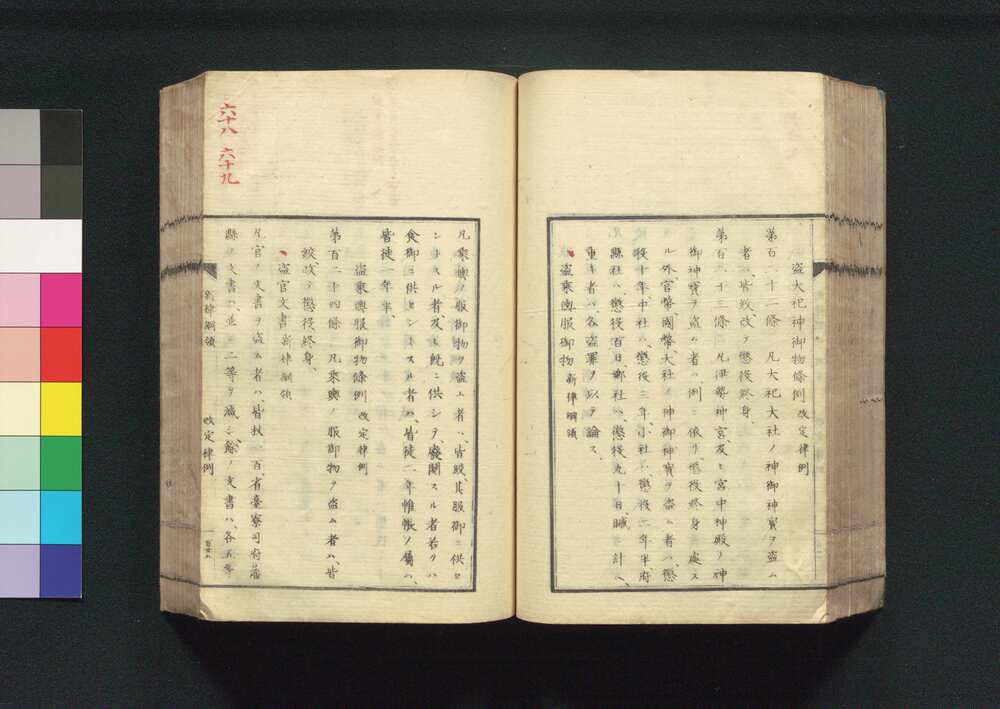 盗大祀神御物條例 改定律例
第百二十二條 凡大祀大社ノ神御神寶ヲ盗ム
者ハ、皆絞、改テ懲役終身、
第百二十三條 凡伊勢神宮、及ヒ宮中神殿ノ神
御神寶ヲ盗ム者ハ、例ニ依リ、懲役終身ニ處ス
ル外、官幣國幣大社ノ神御神寶ヲ盗ム者ハ、懲
役十年、中社ハ、懲役三年、小社ハ、懲役二年半、府
縣社ハ、懲役百日、郷社ハ、懲役九十日、贓ニ計ヘ、
重キ者ハ、各盗罪ヲ以テ論ス、
盗乘輿服御物 新律綱領
凡乘輿ノ服御物ヲ盗ム者ハ、皆絞、其服御ニ供セ
ントスル者、及ヒ既ニ供シテ、廢闕スル者、若クハ
食御ニ供セントスル者ハ、皆徒二年、帷帳ノ屬ハ、
皆徒一年半、
盗乘輿服御物條例 改定律例
第百二十四條 凡乘輿ノ服御物ヲ盗ム者ハ、皆
絞、改テ懲役終身、
盗官文書 新律綱領
凡官ノ文書ヲ盗ム者ハ、皆杖一百、省臺寮司府藩
縣ノ文書ハ、並ニ二等ヲ減シ、餘ノ文書ハ、各五等
新律綱領 改定律例
六十八 六十九